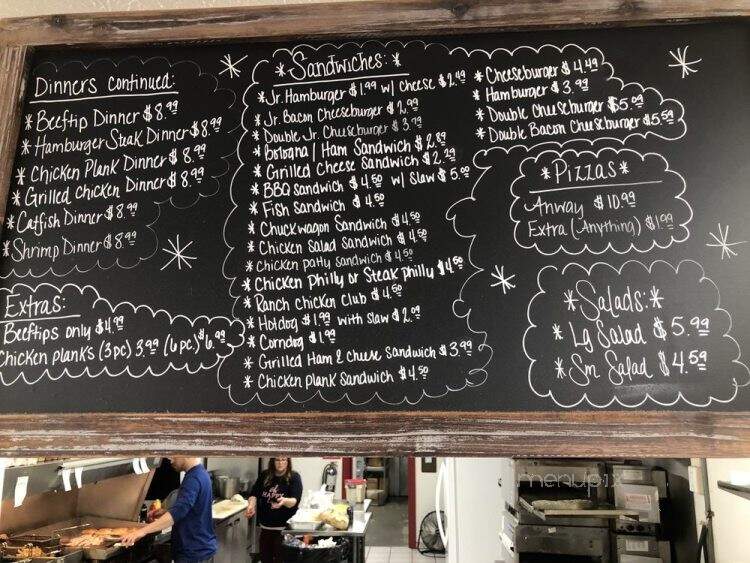 Dinners continued:
* Beeftip Dinner $8.99
* Hamburger Steak Dinner $8.99
* Chicken Plank Dinner $8.99
* Grilled Chicken Dinner $8.99
* Catfish Dinner $8.99
* Shrimp Dinner $8.99
Extras:
Beeftips only $4.99
Chicken planks (3pc) 3.99 (6pc.) $6.99
* Sandwiches: *
* Jr. Hamburger $1.99 w/ cheese $2.49
* Jr. Bacon Cheeseburger $2.99
* Double Jr. Cheeseburger $3.79
* Bologna / Ham Sandwich $2.89
* Grilled Cheese Sandwich $2.29
* BBQ Sandwich $4.50 w/ Slaw $5.00
* Fish Sandwich $4.50
* Chuckwagon Sandwich $4.50
* Chicken Salad Sandwich $4.50
* Chicken patty Sandwich $4.50
* Chicken Philly or Steak philly $4.50
* Ranch chicken Club $4.50
* Hotdog $1.99 with slaw $2.09
* Corndog $1.99
* Grilled Ham & cheese Sandwich $3.99
* Chicken plank Sandwich $4.50
* Cheeseburger $4.49
* Hamburger $3.99
* Double Cheeseburger $5.00
* Double Bacon Cheeseburger $5.50
* Pizzas *
Anyway $10.99
Extra (Anything) $1.99
* Salads: *
* Lg Salad $5.99
* Sm Salad $4.59
menupix